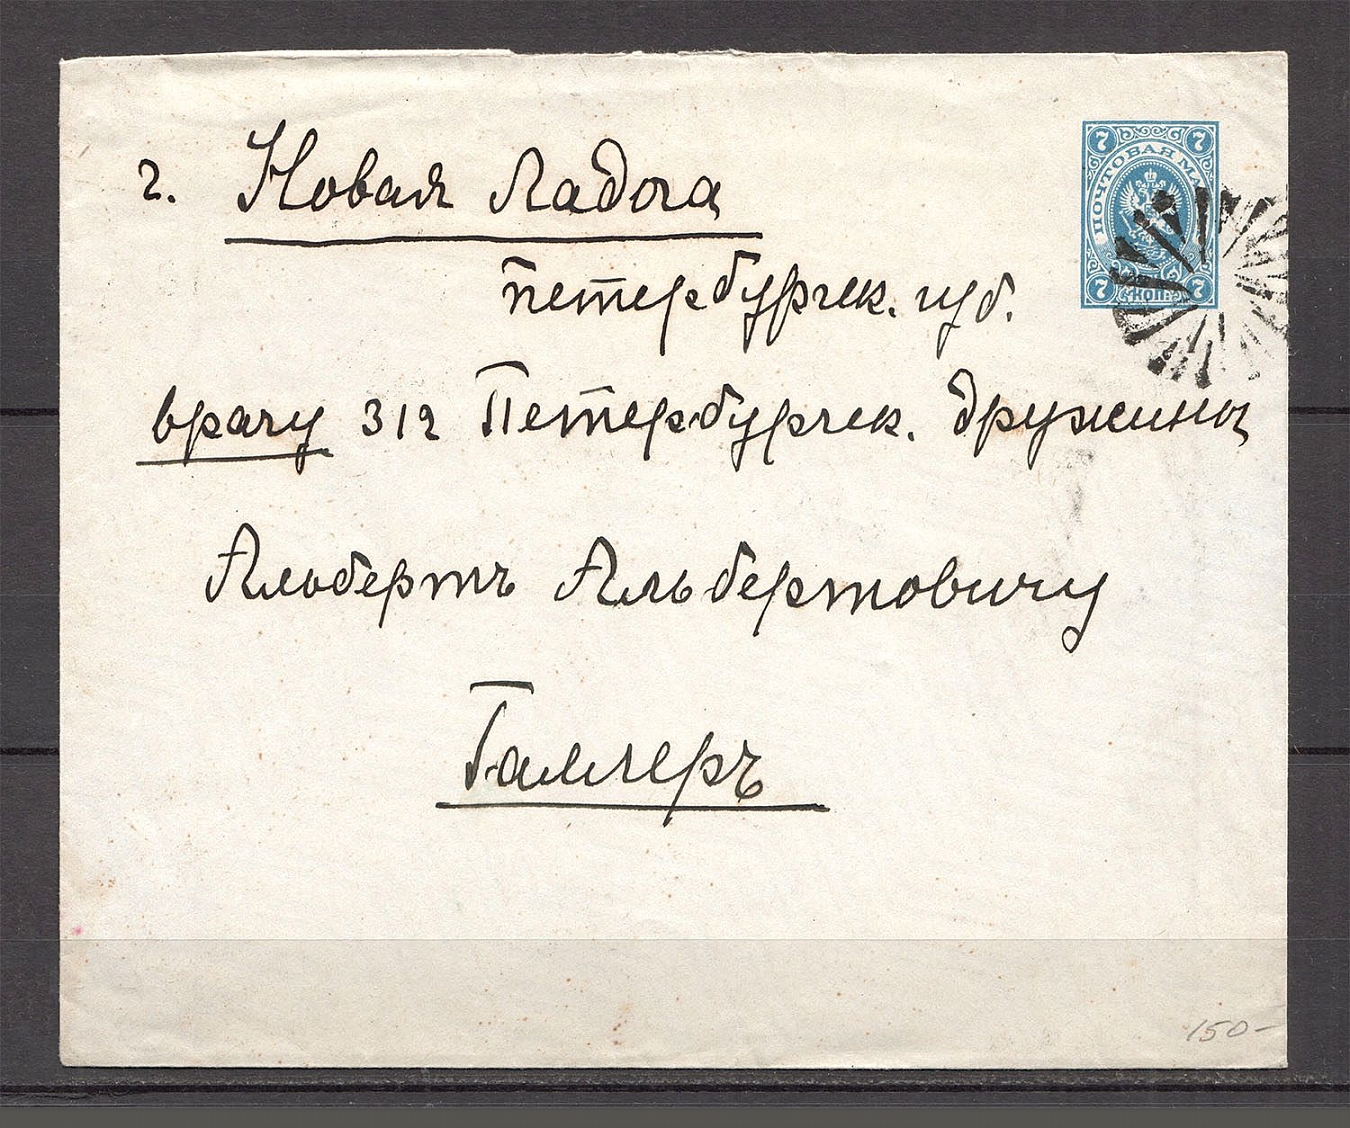 г. Новая Ладога
Петербургск. губ.
врачу 312 Петербургск. дружины
Альбертъ Альбертовичу
Галлеръ
7 7
ПОЧТОВАЯ МА
7 КОП. 7
150-